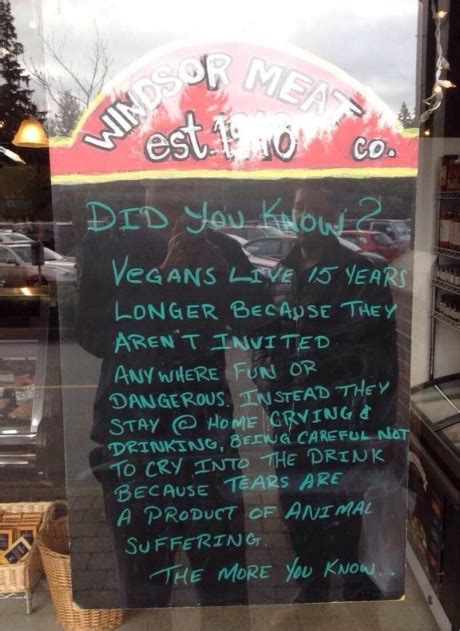 WINDSOR MEAT
est. 1910 CO.
DID YOU KNOW?
VEGANS LIVE 15 YEARS
LONGER BECAUSE THEY
AREN'T INVITED
ANYWHERE FUN OR
DANGEROUS. INSTEAD THEY
STAY @ HOME CRYING &
DRINKING, BEING CAREFUL NOT
TO CRY INTO THE DRINK
BECAUSE TEARS ARE
A PRODUCT OF ANIMAL
SUFFERING.
THE MORE YOU KNOW...